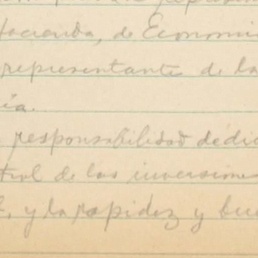 Hacienda, de Economi
representante de la
ia.
responsabilidad dedic
trol de las inversiones
y la rapidez y bue